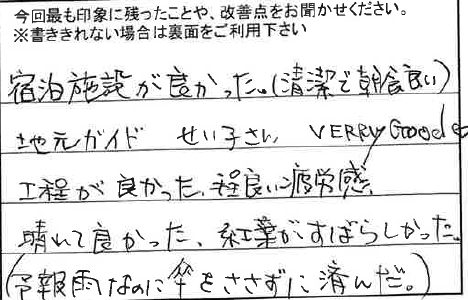 今回最も印象に残ったことや、改善点をお聞かせください。
※書ききれない場合は裏面をご利用下さい
宿泊施設が良かった。(清潔で朝食良い)
地元ガイド せい子さん VERRY Good
工程が良かった、程良い疲労感、
晴れて良かった、紅葉がすばらしかった。
(予報雨なのに傘をささずに済んだ。)